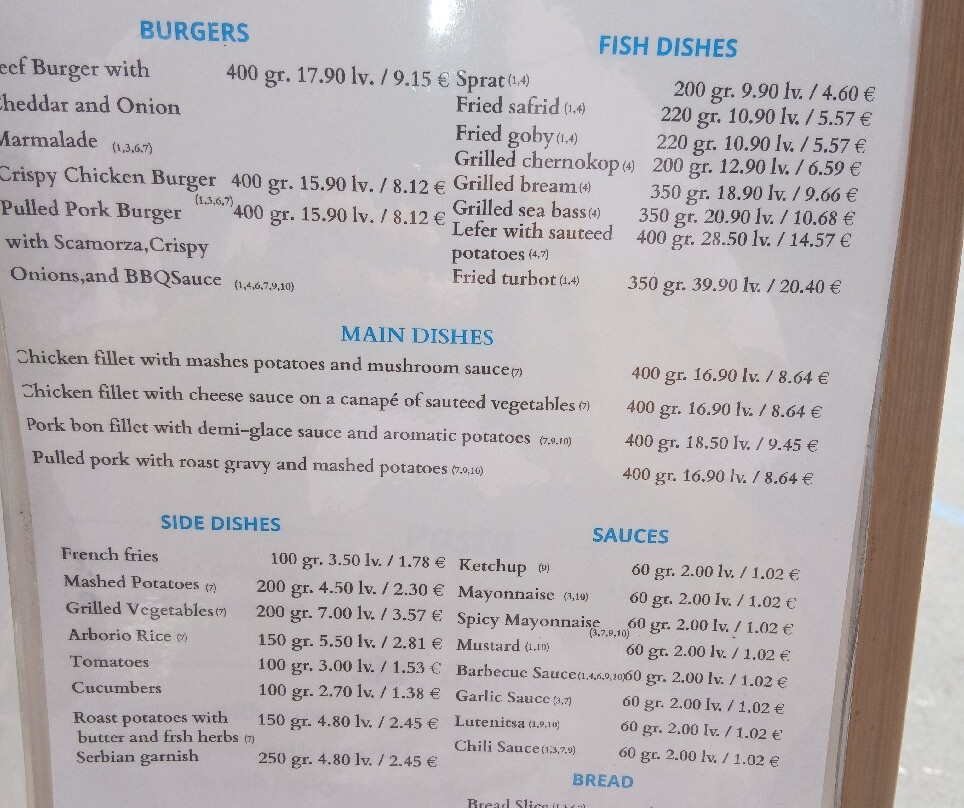 BURGERS
eef Burger with 400 gr. 17.90 lv. / 9.15 €
Cheddar and Onion
Marmalade (1,3,6,7)
Crispy Chicken Burger (1,3,6,7) 400 gr. 15.90 lv. / 8.12 €
Pulled Pork Burger 400 gr. 15.90 lv. / 8.12 €
with Scamorza,Crispy
Onions,and BBQSauce (1,4,6,7,9,10)
FISH DISHES
Sprat (1,4) 200 gr. 9.90 lv. / 4.60 €
Fried safrid (1,4) 220 gr. 10.90 lv. / 5.57 €
Fried goby (1,4) 220 gr. 10.90 lv. / 5.57 €
Grilled chernokop (4) 200 gr. 12.90 lv. / 6.59 €
Grilled bream (4) 350 gr. 18.90 lv. / 9.66 €
Grilled sea bass (4) 350 gr. 20.90 lv. / 10.68 €
Lefer with sauteed 400 gr. 28.50 lv. / 14.57 €
potatoes (4,7)
Fried turbot (1,4) 350 gr. 39.90 lv. / 20.40 €
MAIN DISHES
Chicken fillet with mashes potatoes and mushroom sauce (7) 400 gr. 16.90 lv. / 8.64 €
Chicken fillet with cheese sauce on a canapé of sauteed vegetables (7) 400 gr. 16.90 lv. / 8.64 €
Pork bon fillet with demi-glace sauce and aromatic potatoes (7,9,10) 400 gr. 18.50 lv. / 9.45 €
Pulled pork with roast gravy and mashed potatoes (7,9,10) 400 gr. 16.90 lv. / 8.64 €
SIDE DISHES
French fries 100 gr. 3.50 lv. / 1.78 €
Mashed Potatoes (7) 200 gr. 4.50 lv. / 2.30 €
Grilled Vegetables (7) 200 gr. 7.00 lv. / 3.57 €
Arborio Rice (7) 150 gr. 5.50 lv. / 2.81 €
Tomatoes 100 gr. 3.00 lv. / 1.53 €
Cucumbers 100 gr. 2.70 lv. / 1.38 €
Roast potatoes with 150 gr. 4.80 lv. / 2.45 €
butter and frsh herbs (7)
Serbian garnish 250 gr. 4.80 lv. / 2.45 €
SAUCES
Ketchup (9) 60 gr. 2.00 lv. / 1.02 €
Mayonnaise (3,10) 60 gr. 2.00 lv. / 1.02 €
Spicy Mayonnaise (3,7,9,10) 60 gr. 2.00 lv. / 1.02 €
Mustard (1,10) 60 gr. 2.00 lv. / 1.02 €
Barbecue Sauce (1,4,6,9,10) 60 gr. 2.00 lv. / 1.02 €
Garlic Sauce (3,7) 60 gr. 2.00 lv. / 1.02 €
Lutenitsa (1,9,10) 60 gr. 2.00 lv. / 1.02 €
Chili Sauce (1,3,7,9) 60 gr. 2.00 lv. / 1.02 €
BREAD
Bread Slice